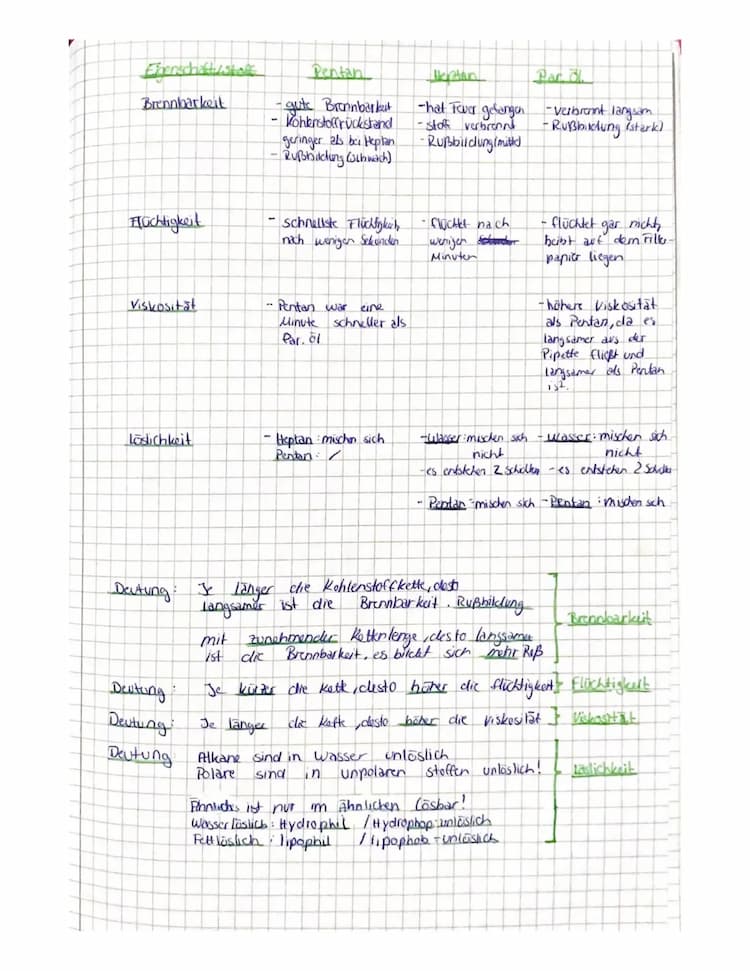 Eigenschaft/Stoff Pentan Heptan Par. Öl
Brennbarkeit
- gute Brennbarkeit
- Kohlenstoffrückstand
geringer als bei Heptan
- Rußbildung (schwach)
- hat Feuer gefangen
- stoff verbrennt
- Rußbildung (mittel)
- verbrennt langsam
- Rußbildung (stark)
Flüchtigkeit
- schnellste Flüchtigkeit,
nach wenigen Sekunden
- flüchtet nach
wenigen
Minuten
- flüchtet gar nicht,
beibt auf dem Filter-
papier liegen
Viskosität
- Pentan war eine
Minute schneller als
Par. öl
- höhere Viskosität
als Pentan, da es
langsamer aus der
Pipette fließt und
langsamer als Pentan
ist.
Löslichkeit
- Heptan: mischen sich
Pentan: /
- Wasser: mischen sich
nicht
- es entstehen 2 Schichten
- Pentan: mischen sich
- Wasser: mischen sich
nicht
- es entstehen 2 Schichten
- Pentan: mischen sich
Deutung: Je länger die Kohlenstoffkette, desto
langsamer ist die Brennbarkeit. Rußbildung
mit zunehmender Kettenlänge, desto langsamer
ist die Brennbarkeit, es bildet sich mehr Ruß
Brennbarkeit
Deutung: Je kürzer die Kette, desto höher die flüchtigkeit Flüchtigkeit
Deutung: Je länger die Kette, desto höher die viskosität Viskosität
Deutung Alkane sind in Wasser unlöslich
Polare sind in unpolaren stoffen unlöslich!
Löslichkeit
Ähnliches ist nur im ähnlichen Lösbar!
Wasserlöslich: Hydrophil / Hydrophop-unlöslich
Fettlöslich: lipophil / lipophob-unlöslich